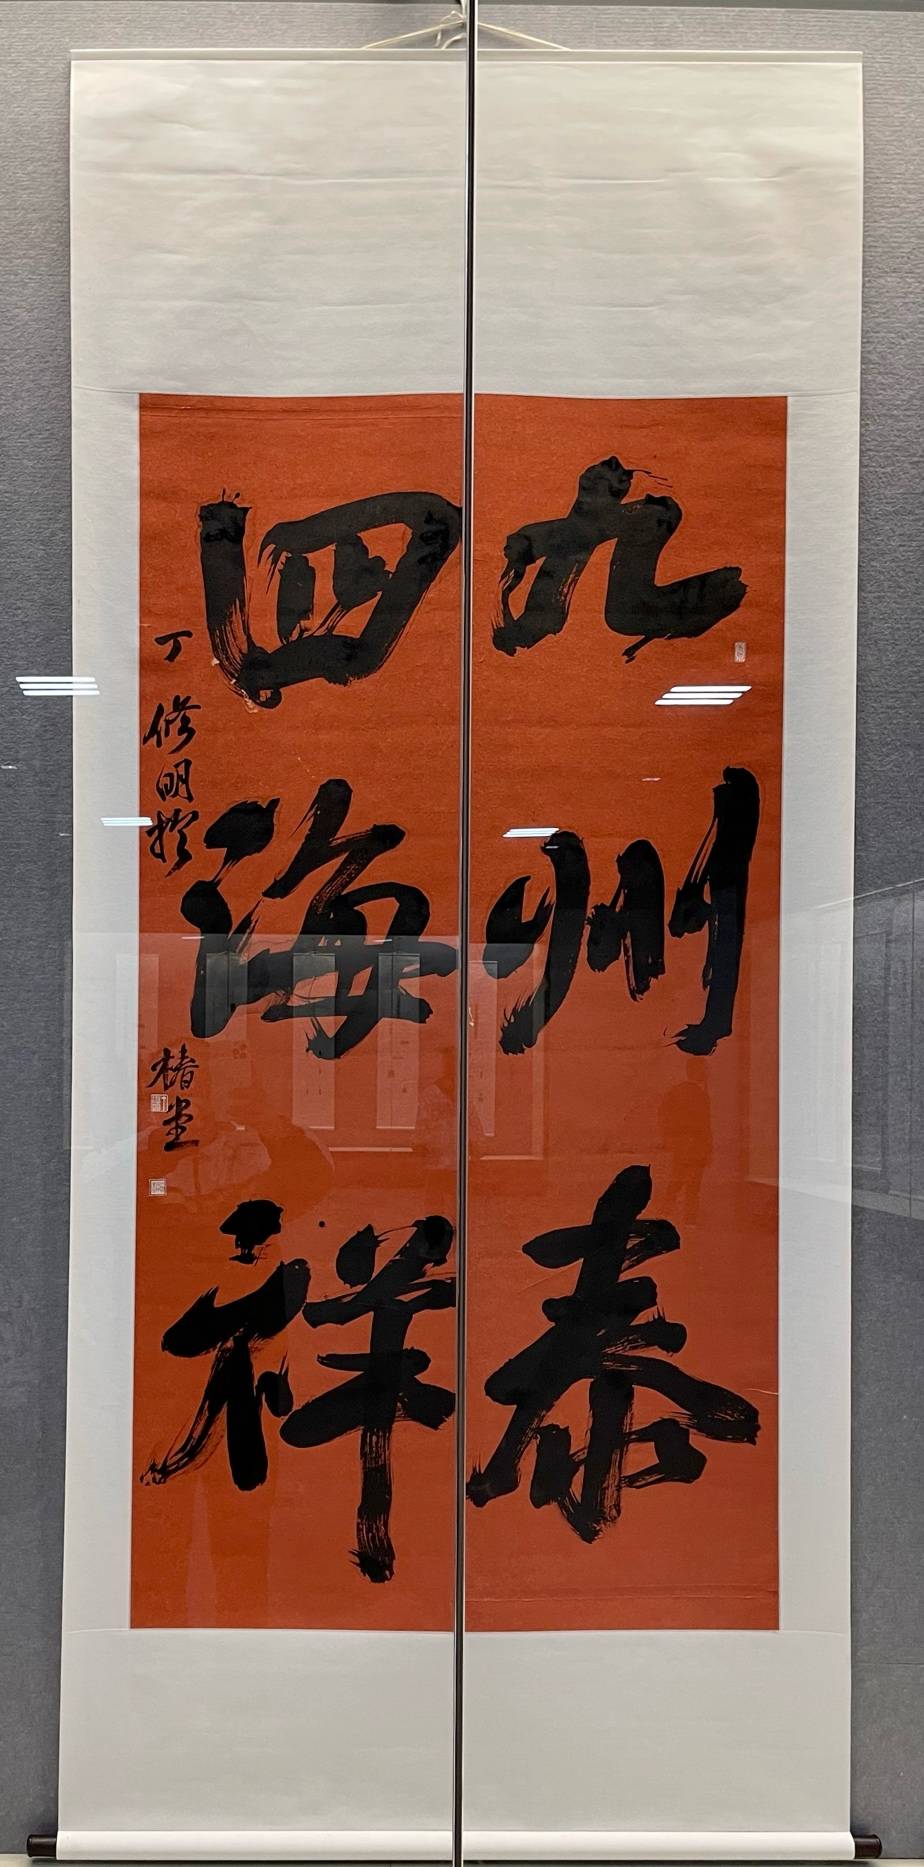 九州泰
四海祥
丁修明撰
椿堂